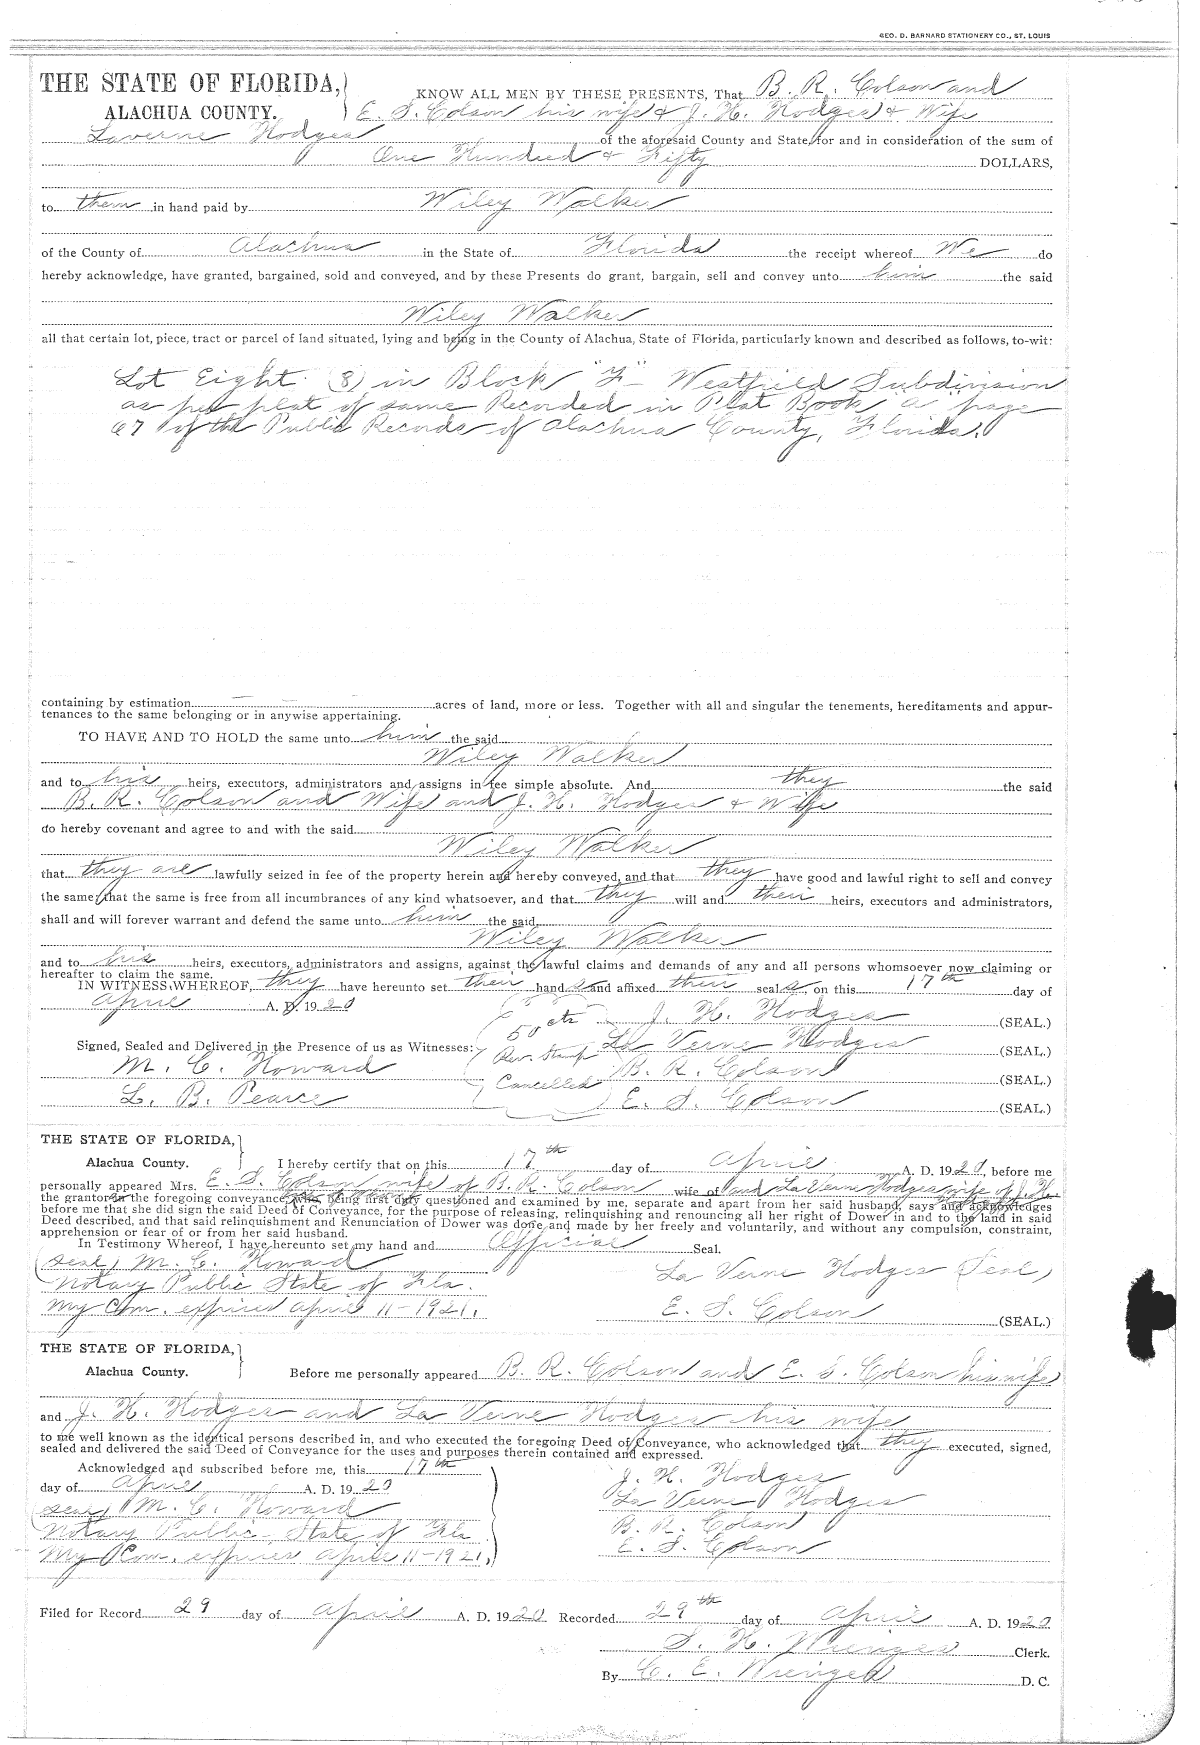 GEO. D. BARNARD STATIONERY CO., ST. LOUIS
THE STATE OF FLORIDA,
ALACHUA COUNTY.
KNOW ALL MEN BY THESE PRESENTS, That B. R. Colson and
E. S. Colson his wife & J. H. Hodges & Wife
Laverne Hodges of the aforesaid County and State, for and in consideration of the sum of
One Hundred & Fifty DOLLARS,
to them in hand paid by Wiley Walker
of the County of Alachua in the State of Florida the receipt whereof We do
hereby acknowledge, have granted, bargained, sold and conveyed, and by these Presents do grant, bargain, sell and convey unto him the said
Wiley Walker
all that certain lot, piece, tract or parcel of land situated, lying and being in the County of Alachua, State of Florida, particularly known and described as follows, to-wit:
Lot Eight (8) in Block "F" Westfield Subdivision
as per plat of same Recorded in Plat Book "A" page
67 of the Public Records of Alachua County, Florida.
containing by estimation acres of land, more or less. Together with all and singular the tenements, hereditaments and appur-
tenances to the same belonging or in anywise appertaining.
TO HAVE AND TO HOLD the same unto him the said
Wiley Walker
and to his heirs, executors, administrators and assigns in fee simple absolute. And they the said
B. R. Colson and Wife and J. H. Hodges & Wife
do hereby covenant and agree to and with the said
Wiley Walker
that they are lawfully seized in fee of the property herein and hereby conveyed, and that they have good and lawful right to sell and convey
the same; that the same is free from all incumbrances of any kind whatsoever, and that they will and their heirs, executors and administrators,
shall and will forever warrant and defend the same unto him the said
Wiley Walker
and to his heirs, executors, administrators and assigns, against the lawful claims and demands of any and all persons whomsoever now claiming or
hereafter to claim the same.
IN WITNESS WHEREOF, they have hereunto set their hand s and affixed their seal s, on this 17th day of
April A. D. 19 20
J. H. Hodges (SEAL.)
50 cts
Signed, Sealed and Delivered in the Presence of us as Witnesses:
La Verne Hodges (SEAL.)
Rev. Stamp
M. C. Howard
B. R. Colson (SEAL.)
Cancelled
L. B. Pearce
E. S. Colson (SEAL.)
THE STATE OF FLORIDA,
Alachua County.
I hereby certify that on this 17th day of April A. D. 19 20, before me
personally appeared Mrs. E. S. Colson wife of B. R. Colson wife of and La Verne Hodges wife of J. H.
the grantor in the foregoing conveyance, who, being first duly questioned and examined by me, separate and apart from her said husband, says and acknowledges
before me that she did sign the said Deed of Conveyance, for the purpose of releasing, relinquishing and renouncing all her right of Dower in and to the land in said
Deed described, and that said relinquishment and Renunciation of Dower was done and made by her freely and voluntarily, and without any compulsion, constraint,
apprehension or fear of or from her said husband.
In Testimony Whereof, I have hereunto set my hand and Official Seal.
(seal) M. C. Howard
La Verne Hodges (Seal)
Notary Public State of Fla.
My Com. expires April 11-1921.
E. S. Colson (SEAL.)
THE STATE OF FLORIDA,
Alachua County.
Before me personally appeared B. R. Colson and E. S. Colson his wife
and J. H. Hodges and La Verne Hodges his wife
to me well known as the identical persons described in, and who executed the foregoing Deed of Conveyance, who acknowledged that they executed, signed,
sealed and delivered the said Deed of Conveyance for the uses and purposes therein contained and expressed.
Acknowledged and subscribed before me, this 17th
day of April A. D. 19 20
J. H. Hodges
(seal) M. C. Howard
La Verne Hodges
Notary Public State of Fla
B. R. Colson
My Com. expires April 11-1921.
E. S. Colson
Filed for Record 29 day of April A. D. 19 20 Recorded 29th day of April A. D. 19 20
S. H. Wienges Clerk.
By C. E. Wienges D. C.